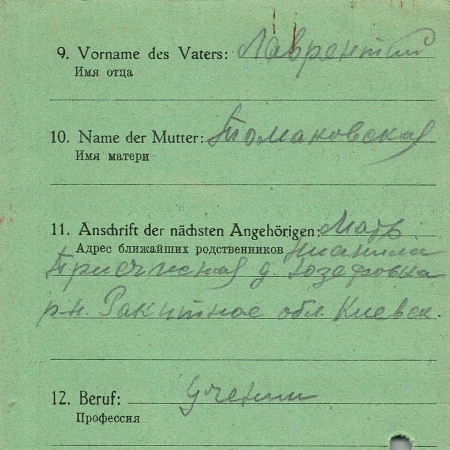 9. Vorname des Vaters: Лаврентий
Имя отца
10. Name der Mutter: Томаковская
Имя матери
11. Anschrift der nächsten Angehörigen: Мать
Адрес ближайших родственников
д. Юзефовка
р-н. Ракитное обл. Киевск.
12. Beruf:
Профессия